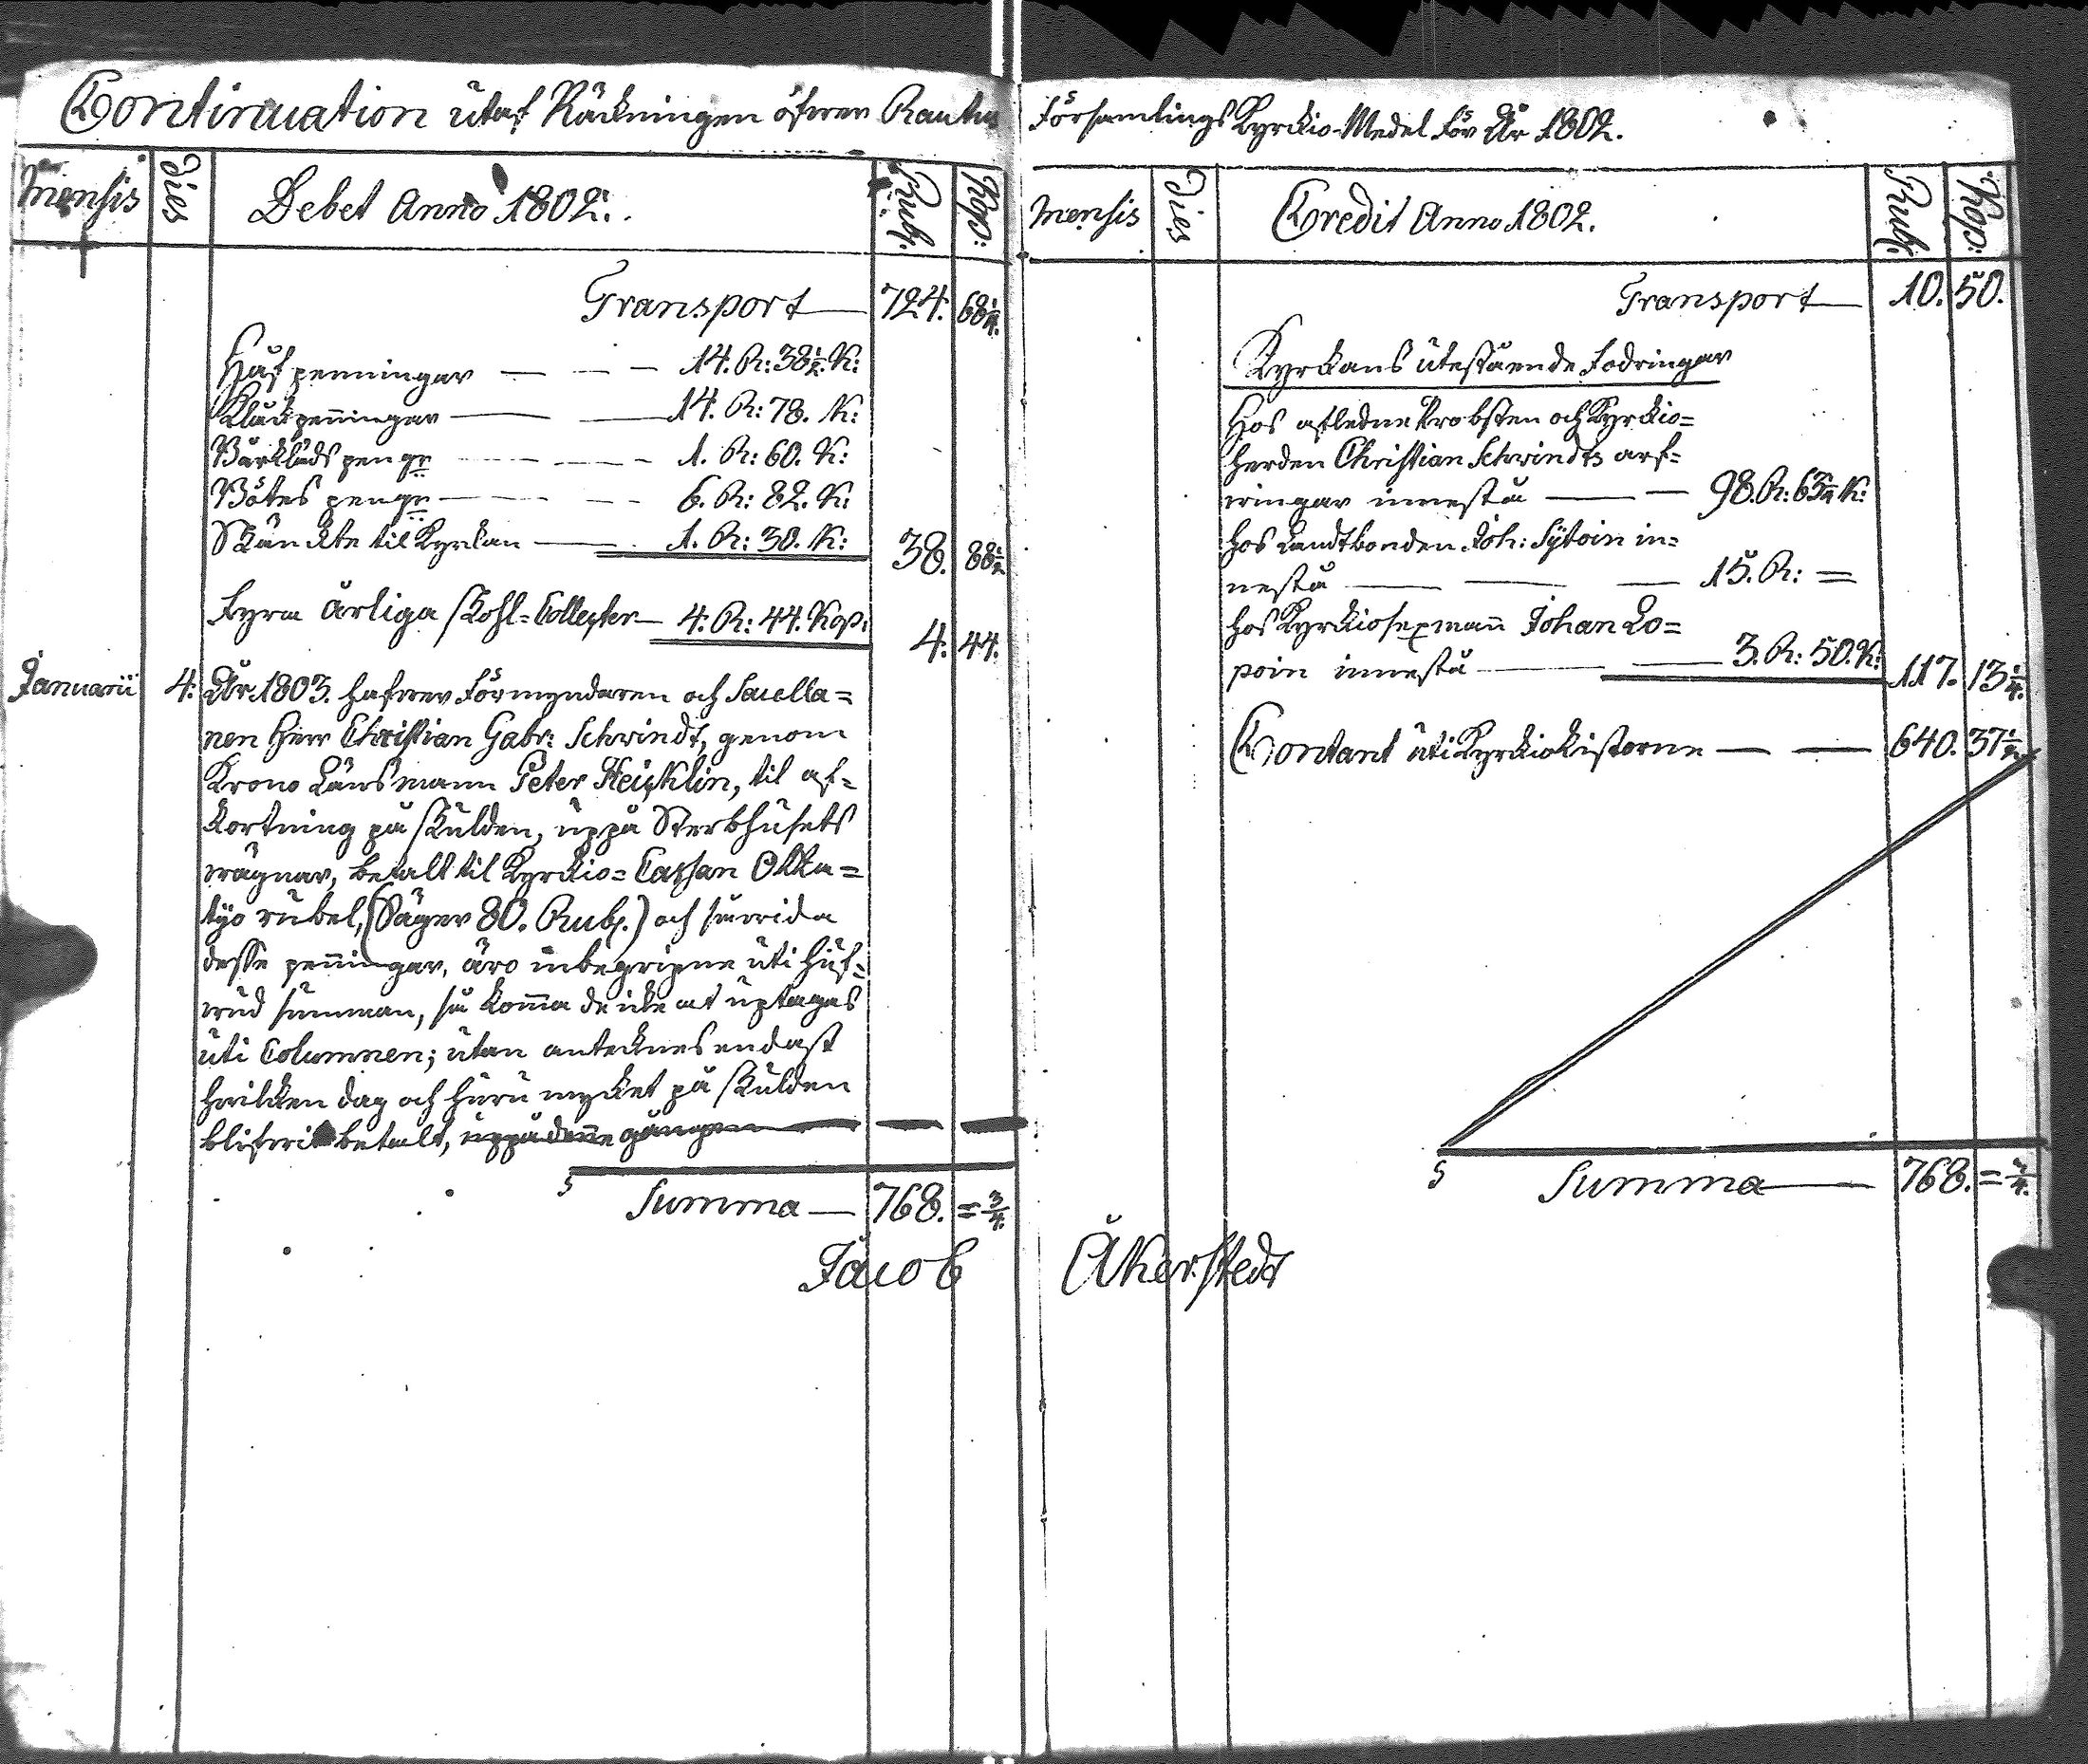 Continuation utaf Räckningen öfwer Rautus
Mensis Dies Debet Anno 1802. Rub: Kop:
Transport 724. 68 1/4.
Håfpenningar 14. R: 38 1/2. K:
Klåckpenningar 14. R: 78. K:
Bårklädspengr 1. R: 60. K:
Bötespengr 6. R: 82. K:
Skänckte til Kyrkan 1. R: 30. K: 38. 88 1/2
Fyra årliga Skohl-Collecter 4. R: 44. Kop: 4. 44.
Januarii 4. År 1803. hafwer Förmyndaren och Sacella=
nen Herr Christian Gabr: Schwindt, genom
Krono Länsmann Peter Heisklin, til af=
kortning på skulden, uppå Sterbhusets
wägnar, betalt til Kyrckio=Cassan Otta=
tijo rubel, (Säger 80. Rub.) och såwida
desse penningar, äro inbegripne uti huf=
wud summan, så komma de icke at uptagas
uti Columnen; utan antecknes endast
hwilcken dag och huru mycket på skulden
blifwit betalt, uppå denne gången
S Summa 768. = 3/4.
Jacob
Församlings Kyrckio-Medel För År 1802.
Mensis Dies Credit Anno 1802. Rub: Kop:
Transport 10. 50.
Kyrckans utestående Fodringar
Hos afledne Probsten och Kyrckio=
herden Christian Schwindts arf=
wingar innestå 98. R: 63 1/4 K:
hos Landtbonden Joh: Sÿtoin in=
nestå 15. R: =
hos Kyrckiosexmann Johan Lo=
poin innestå 3. R: 50. K: 117. 13 1/4.
Contant uti Kyrckiokistorne 640. 37 1/2
S Summa 768. = 3/4.
Åkerstedt